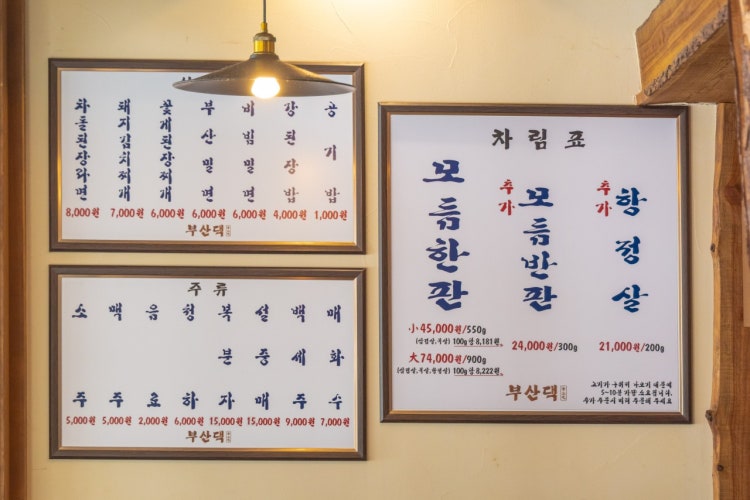 차돌된장라면
돼지김치찌개
꽃게된장찌개
부산밀면
비빔밀면
강된장밥
공기밥
8,000원 7,000원 6,000원 6,000원 6,000원 4,000원 1,000원
부산댁
주류
소주
맥주
음료
청하
복분자
설중매
백세주
매화수
5,000원 5,000원 2,000원 6,000원 15,000원 15,000원 9,000원 7,000원
부산댁
차림표
모듬한판
小 45,000원/550g
(삼겹살,목살) 100g 당 8,181원
大 74,000원/900g
(삼겹살,목살,항정살) 100g 당 8,222원
추가
모듬반판
24,000원/300g
추가
항정살
21,000원/200g
부산댁
고기가 구워져 나오기 때문에
5~10분 가량 소요됩니다.
추가 주문시 미리 주문해 주세요